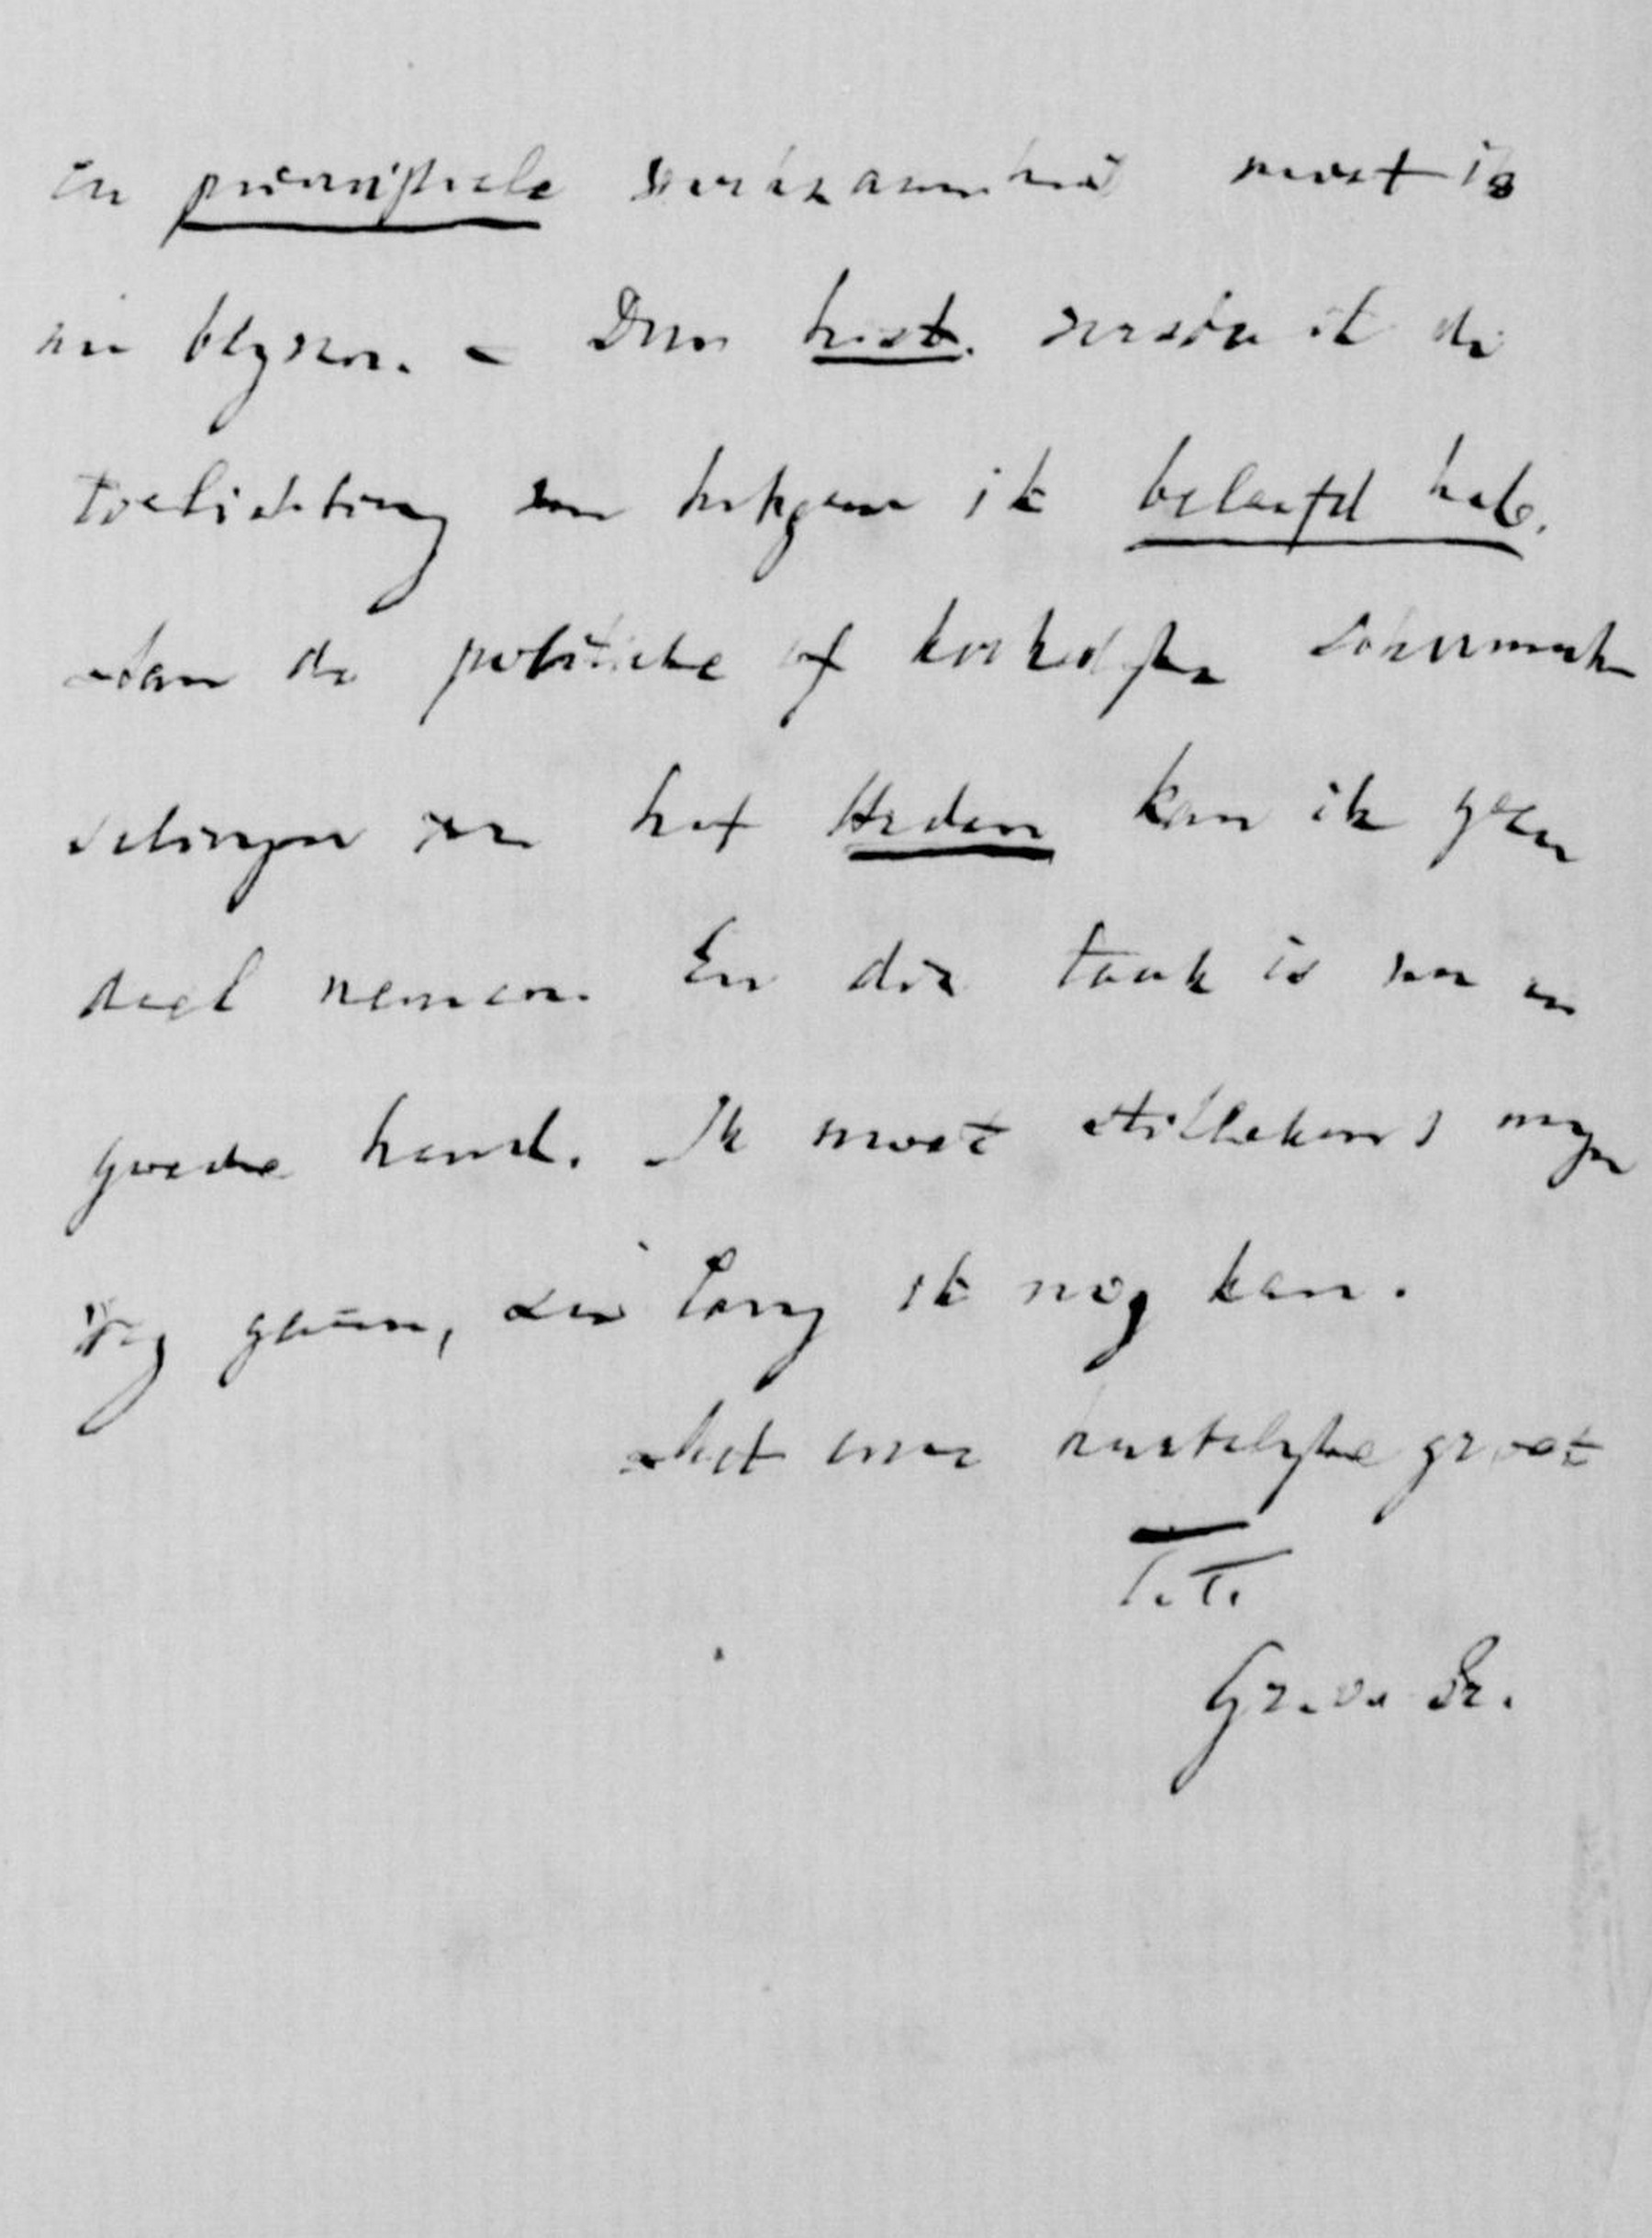 en principieele werkzaamheid moet ik
nu blyven. – Door hist. versta ik de
toelichting van hetgeen ik beleefd heb.
Aan de politieke of kerkelyke schermutse
selingen van het Heden kan ik geen
deel nemen. En die taak is van in
goede hand. Ik moet stillekens myn
weg gaan, zoo lang ik nog kan.
Met onze hartelyke groet
T.T.
Gr. v. Pr.